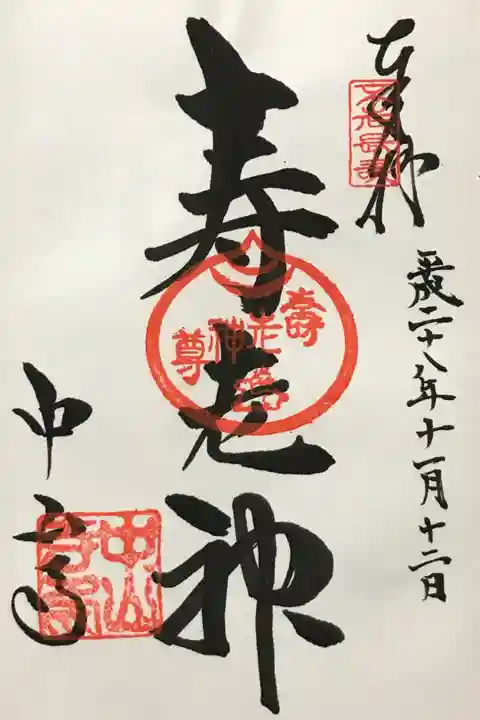 奉拝
平成二十八年十一月十二日
寿老神
壽老神尊
中山寺